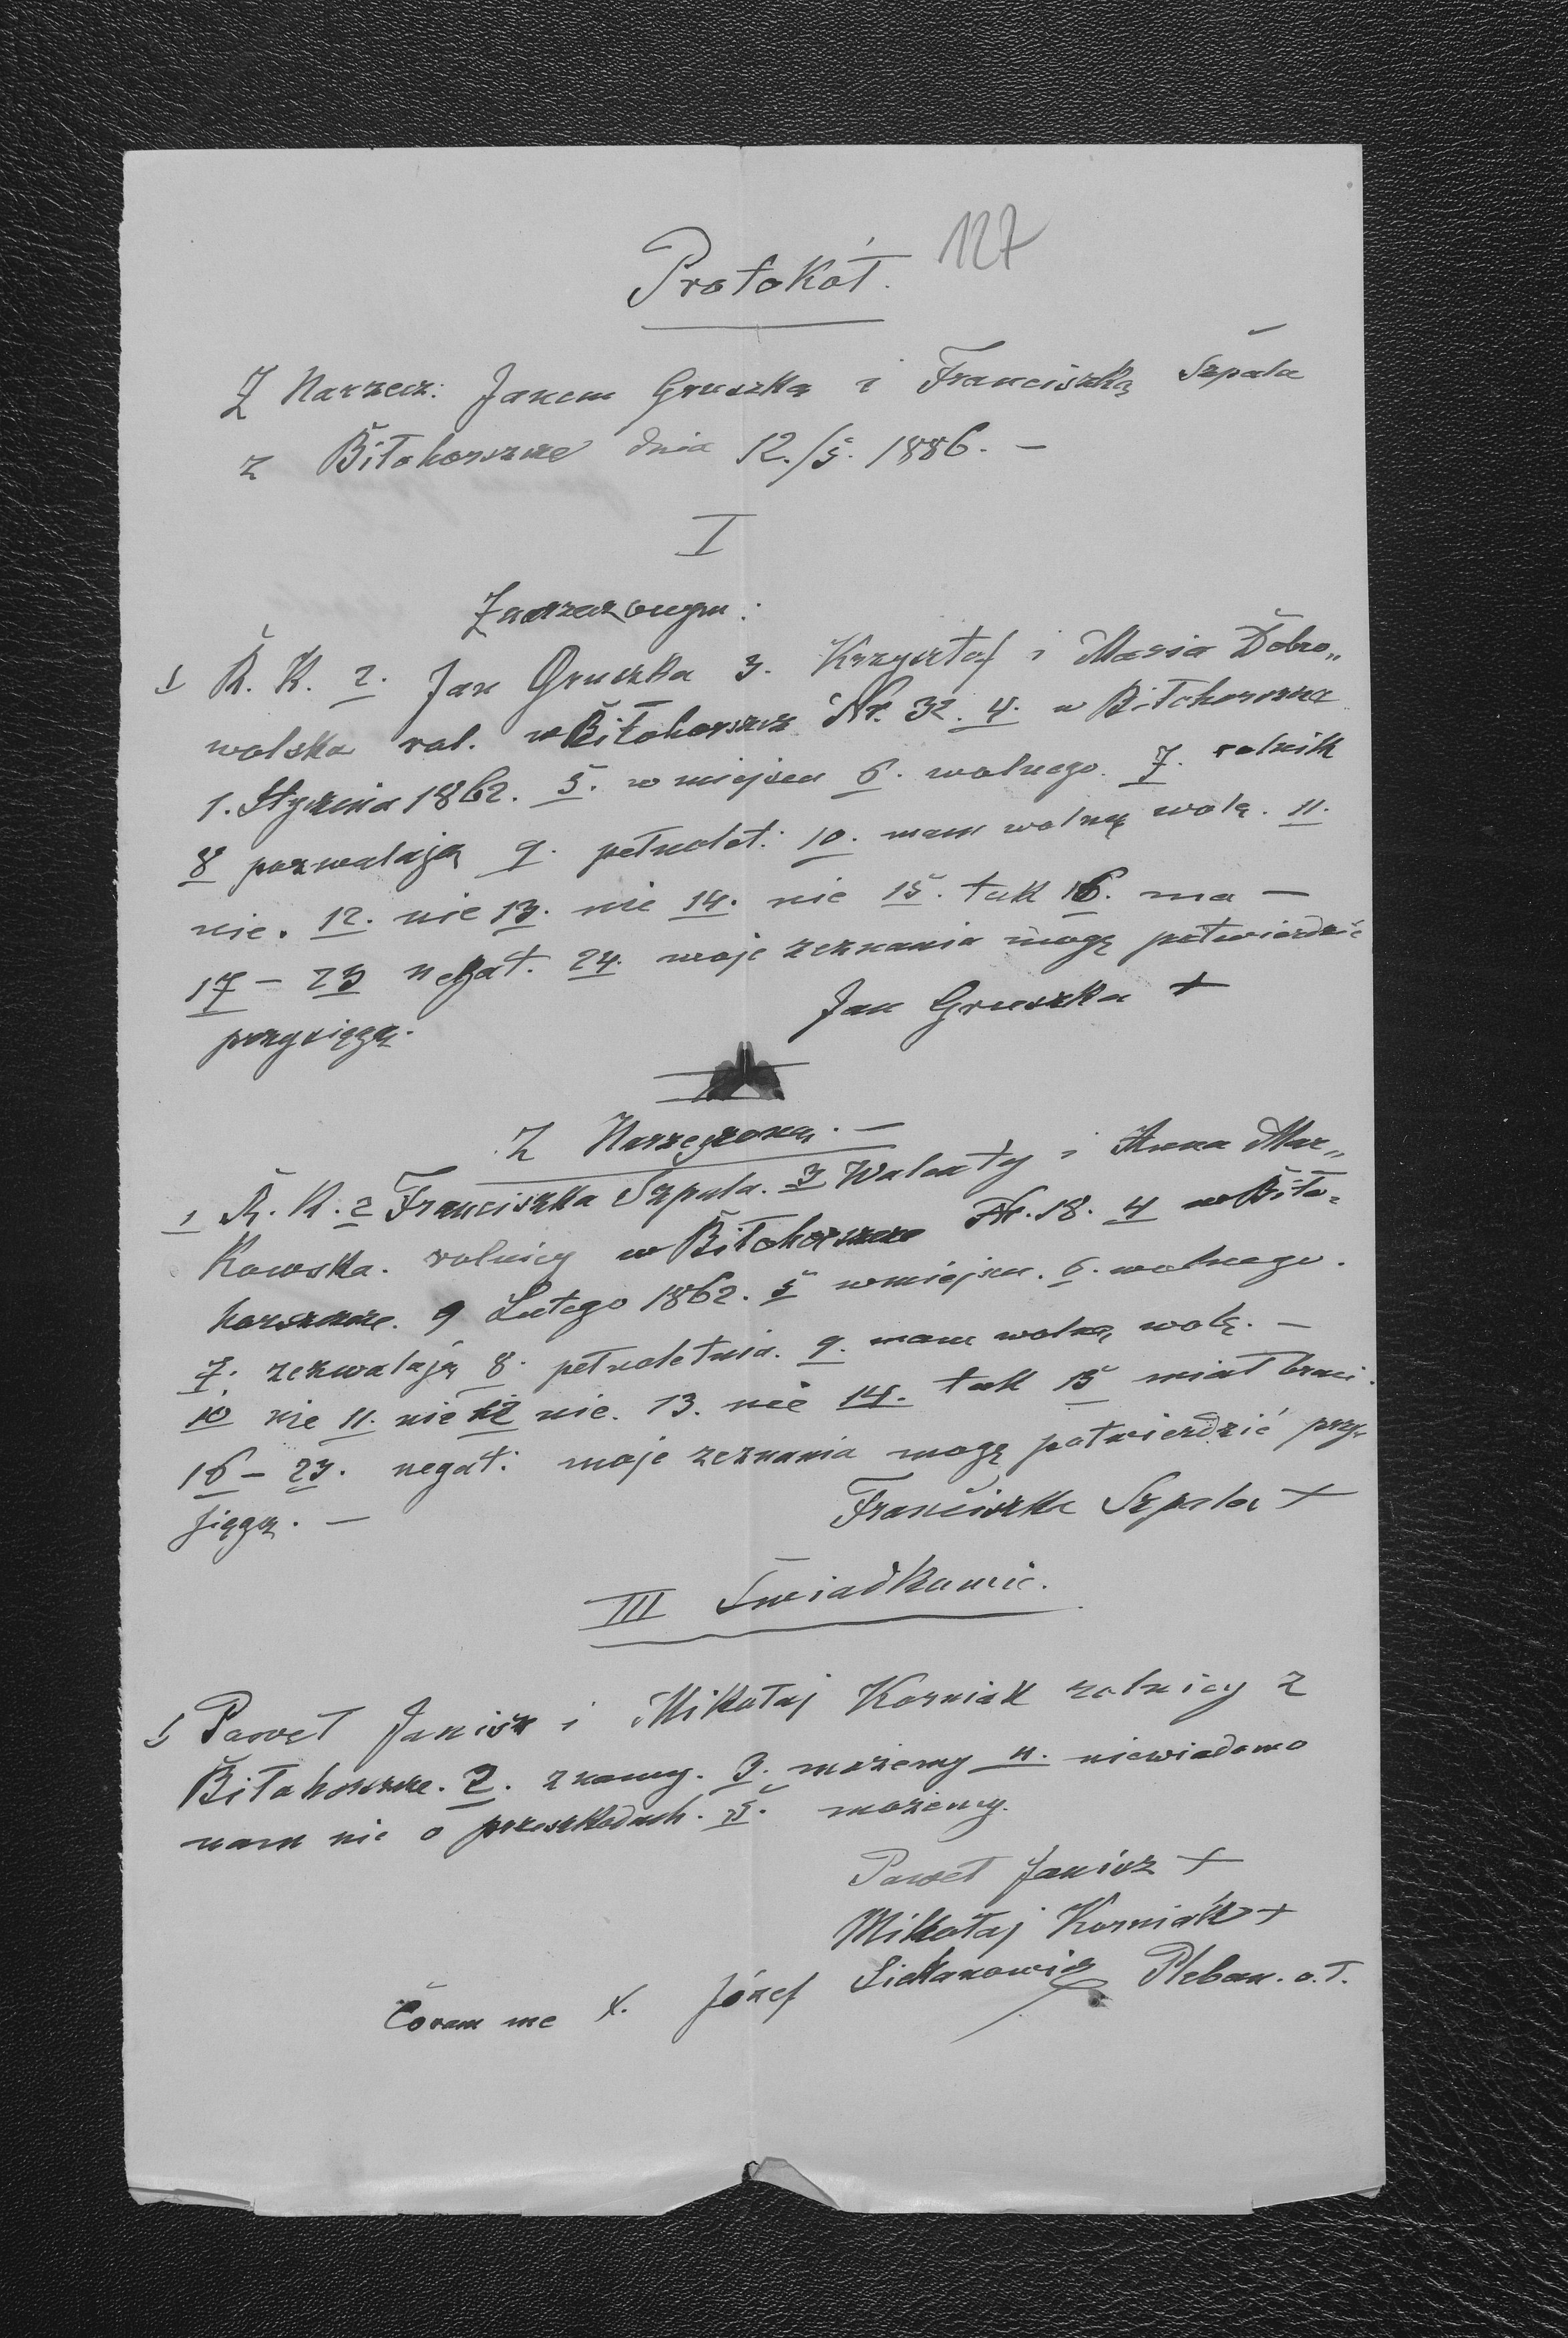 127
Protokół.
Z Narzecz: Janem Gruszka i Franciszką Szpala
z Biłohorszcze dnia 12./5. 1886. —
I
Z narzeczonym:
1 R. K. 2. Jan Gruszka 3. Krzysztof i Maria Dobro„
wolska rol. w Biłohorszcz Nr. 32. 4. w Biłohorszcze
1. Stycznia 1862. 5. w miejscu 6. wolnego. 7. rolnik
8 pozwalają 9. pełnolet: 10. mam wolną wolę. 11.
nie. 12. nie 13. nie 14. nie 15. tak 16. ma —
17 — 23 negat. 24. moje zeznania mogę potwierdzić
przysięgą.
Jan Gruszka +
Z Narzeczoną. —
1 R. K. 2 Franciszka Szpala. 3 Walenty i Anna Mar„
kowska. rolnicy w Biłohorszcze Nr. 18. 4 w Biło=
horszcze. 9 Lutego 1862. 5 w miejscu. 6. wolnego.
7. zezwalają 8. pełnoletnia. 9. mam wolną wolę. —
10 nie 11. nie 12 nie. 13. nie 14. tak 15 miał braci.
16 — 23. negat: moje zeznania mogę potwierdzić przy-
sięgą. —
Franciszka Szpala +
III Świadkami.
1 Paweł Janisz i Mikołaj Korniak rolnicy z
Biłohorszcze. 2. znamy. 3. możemy 4. niewiadomo
nam nic o przeszkodach. 5. możemy.
Paweł Janisz +
Mikołaj Korniak +
Coram me X. Józef Pleban. o. ł.